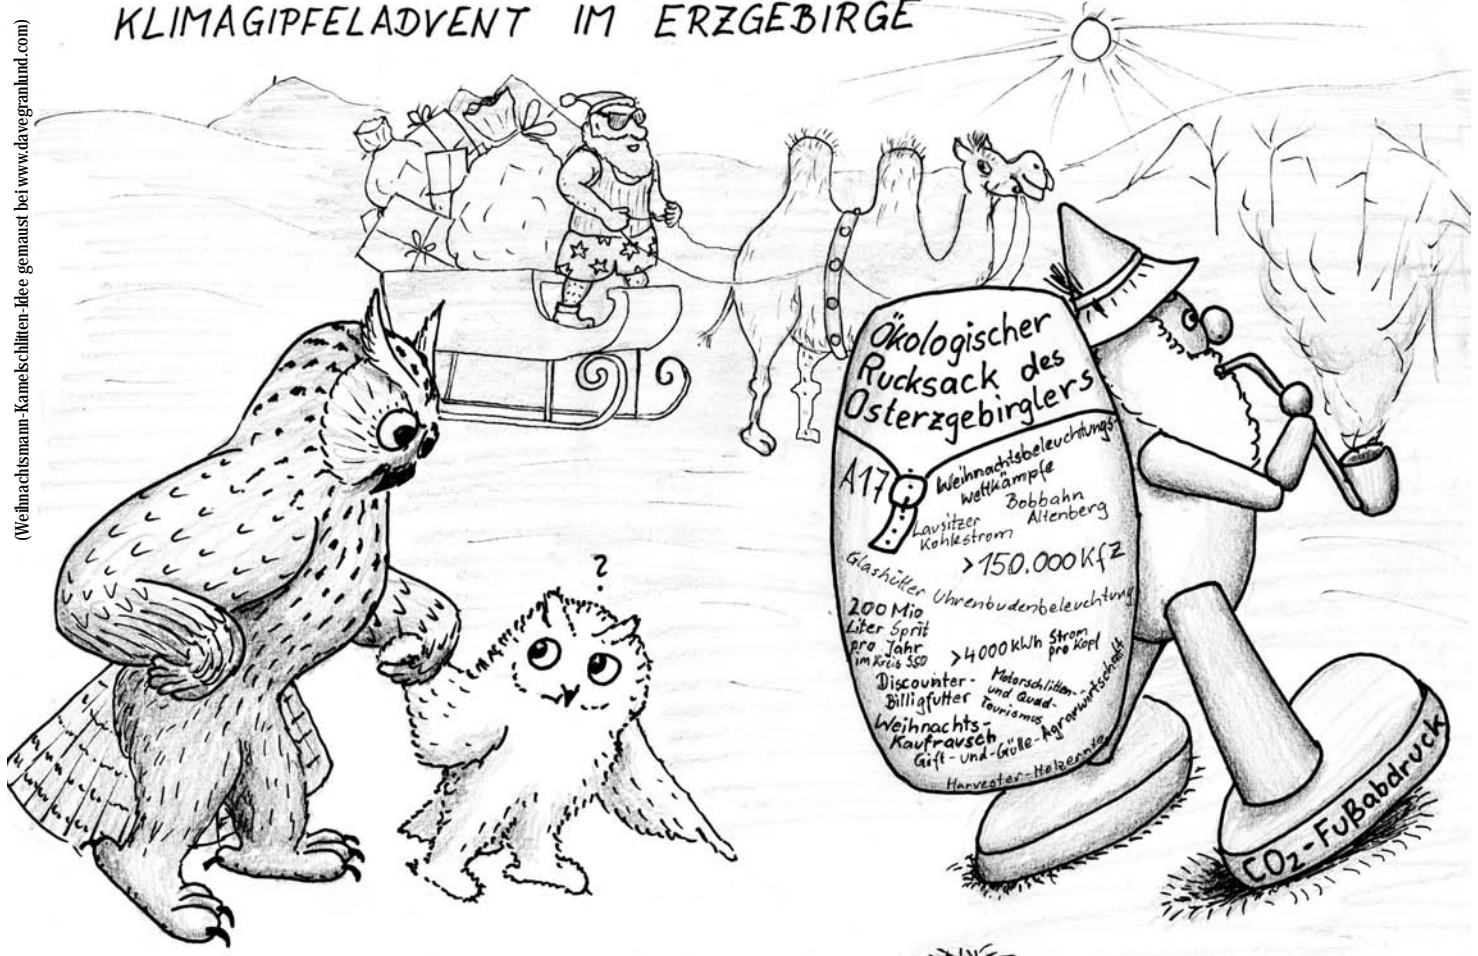 KLIMAGIPFELADVENT IM ERZGEBIRGE
(Weihnachtsmann-Kamelschlitten-Idee gemaust bei www.davegranlund.com)
Ökologischer
Rucksack des
Osterzgebirglers
A17
Weihnachtsbeleuchtungs-
wettkämpfe
Bobbahn
Altenberg
Lausitzer
Kohlestrom
>150.000 KfZ
Glashütter Uhrenbudenbeleuchtung
200 Mio
Liter Sprit
pro Jahr
im Kreis SSO
>4000 kWh Strom
pro Kopf
Discounter-
Billigfutter
Motorschlitten-
und Quad-
Tourismus
Weihnachts-
Kaufrausch
Gift-und-Gülle-Agrarwirtschaft
Harvester-Holzernte
?
CO2-Fußabdruck